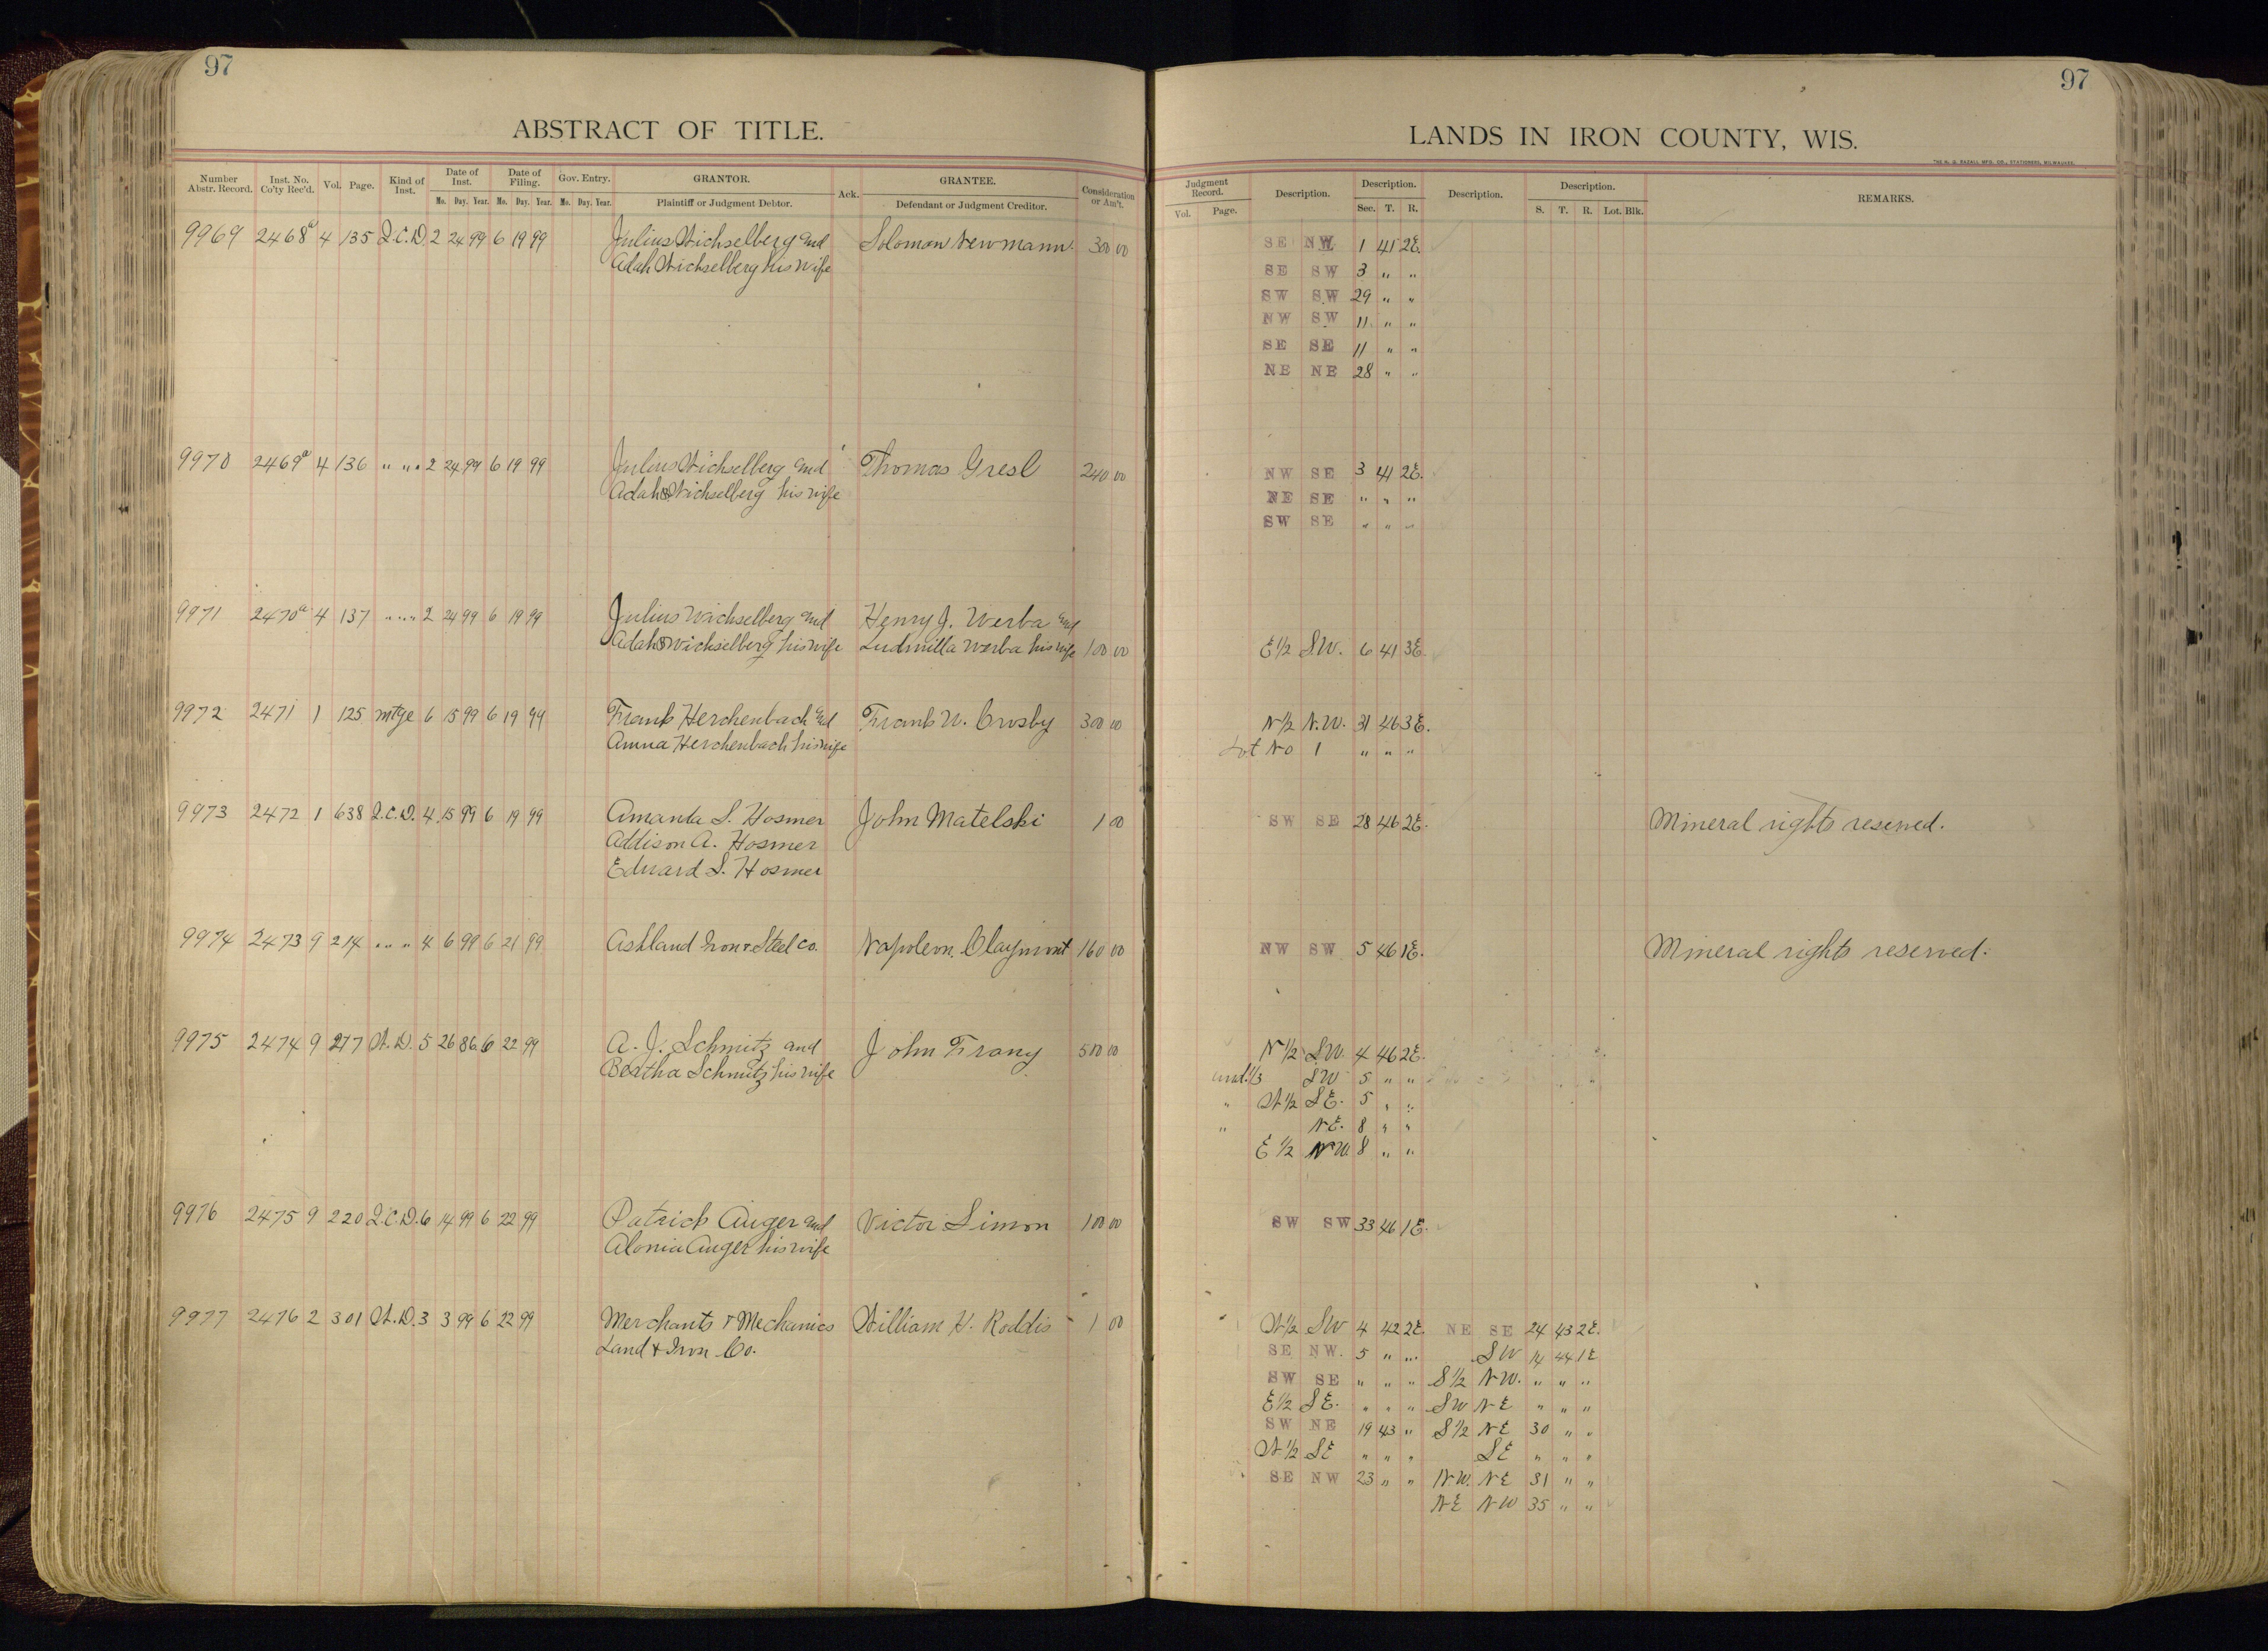 97
ABSTRACT OF TITLE.
Number Abstr. Record. Inst. No. Co'ty Rec'd. Vol. Page. Kind of Inst. Date of Inst. Mo. Day. Year. Date of Filing. Mo. Day. Year. Gov. Entry. Mo. Day. Year. GRANTOR. Plaintiff or Judgment Debtor. Ack. GRANTEE. Defendant or Judgment Creditor. Consideration or Am't.
9969 2468a 4 135 Q.C.D. 2 24 99 6 19 99 Julius Wichselberg and Solomon Newmann. 300 00
Adah Wichselberg his wife
9970 2469a 4 136 " " " 2 24 99 6 19 99 Julius Wichselberg and Thomas Gresl 240 00
Adah Wichselberg his wife
9971 2470a 4 137 " " " 2 24 99 6 19 99 Julius Wichselberg and Henry J. Werba and
Adah Wichselberg his wife Ludmilla Werba his wife 100 00
9972 2471 1 125 mtge 6 15 99 6 19 99 Frank Herchenbach and Frank N. Crosby 300 00
Anna Herchenbach his wife
9973 2472 1 638 Q.C.D. 4 15 99 6 19 99 Amanda S. Hosmer John Matelski 1 00
Addison A. Hosmer
Edward S. Hosmer
9974 2473 9 214 " " " 4 6 99 6 21 99 Ashland Iron & Steel Co. Napoleon Claymont 160 00
9975 2474 9 277 W.D. 5 26 86 6 22 99 A. J. Schmitz and John Frany 500 00
Bertha Schmitz his wife
9976 2475 9 220 Q.C.D. 6 14 99 6 22 99 Patrick Auger and Victor Simon 100 00
Alonia Auger his wife
9977 2476 2 301 W.D. 3 3 99 6 22 99 Merchants & Mechanics William H. Roddis 1 00
Land & Iron Co.
97
LANDS IN IRON COUNTY, WIS.
THE H. G. RAZALL MFG. CO., STATIONERS, MILWAUKEE.
Judgment Record. Vol. Page. Description. Description. Sec. T. R. Description. Description. S. T. R. Lot. Blk. REMARKS.
SE NW 1 41 2E.
SE SW 3 " "
SW SW 29 " "
NW SW 11 " "
SE SE 11 " "
NE NE 28 " "
NW SE 3 41 2E.
NE SE " " "
SW SE " " "
E 1/2 S.W. 6 41 3E.
N 1/2 N.W. 31 46 3E.
Lot No 1 " " "
SW SE 28 46 2E. Mineral rights reserved.
NW SW 5 46 1E. Mineral rights reserved.
N 1/2 S.W. 4 46 2E.
und. 1/3 SW 5 " "
" W 1/2 S.E. 5 " "
" N.E. 8 " "
E 1/2 N.W. 8 " "
SW SW 33 46 1E.
W 1/2 SW 4 42 2E. NE SE 24 43 2E.
SE NW. 5 " " SW 14 44 1E
SW SE " " " S 1/2 N.W. " " "
E 1/2 S.E. " " " SW NE " " "
SW NE 19 43 " S 1/2 NE 30 " "
W 1/2 SE " " " SE " " "
SE NW 23 " " N.W. NE 31 " "
NE NW 35 " "